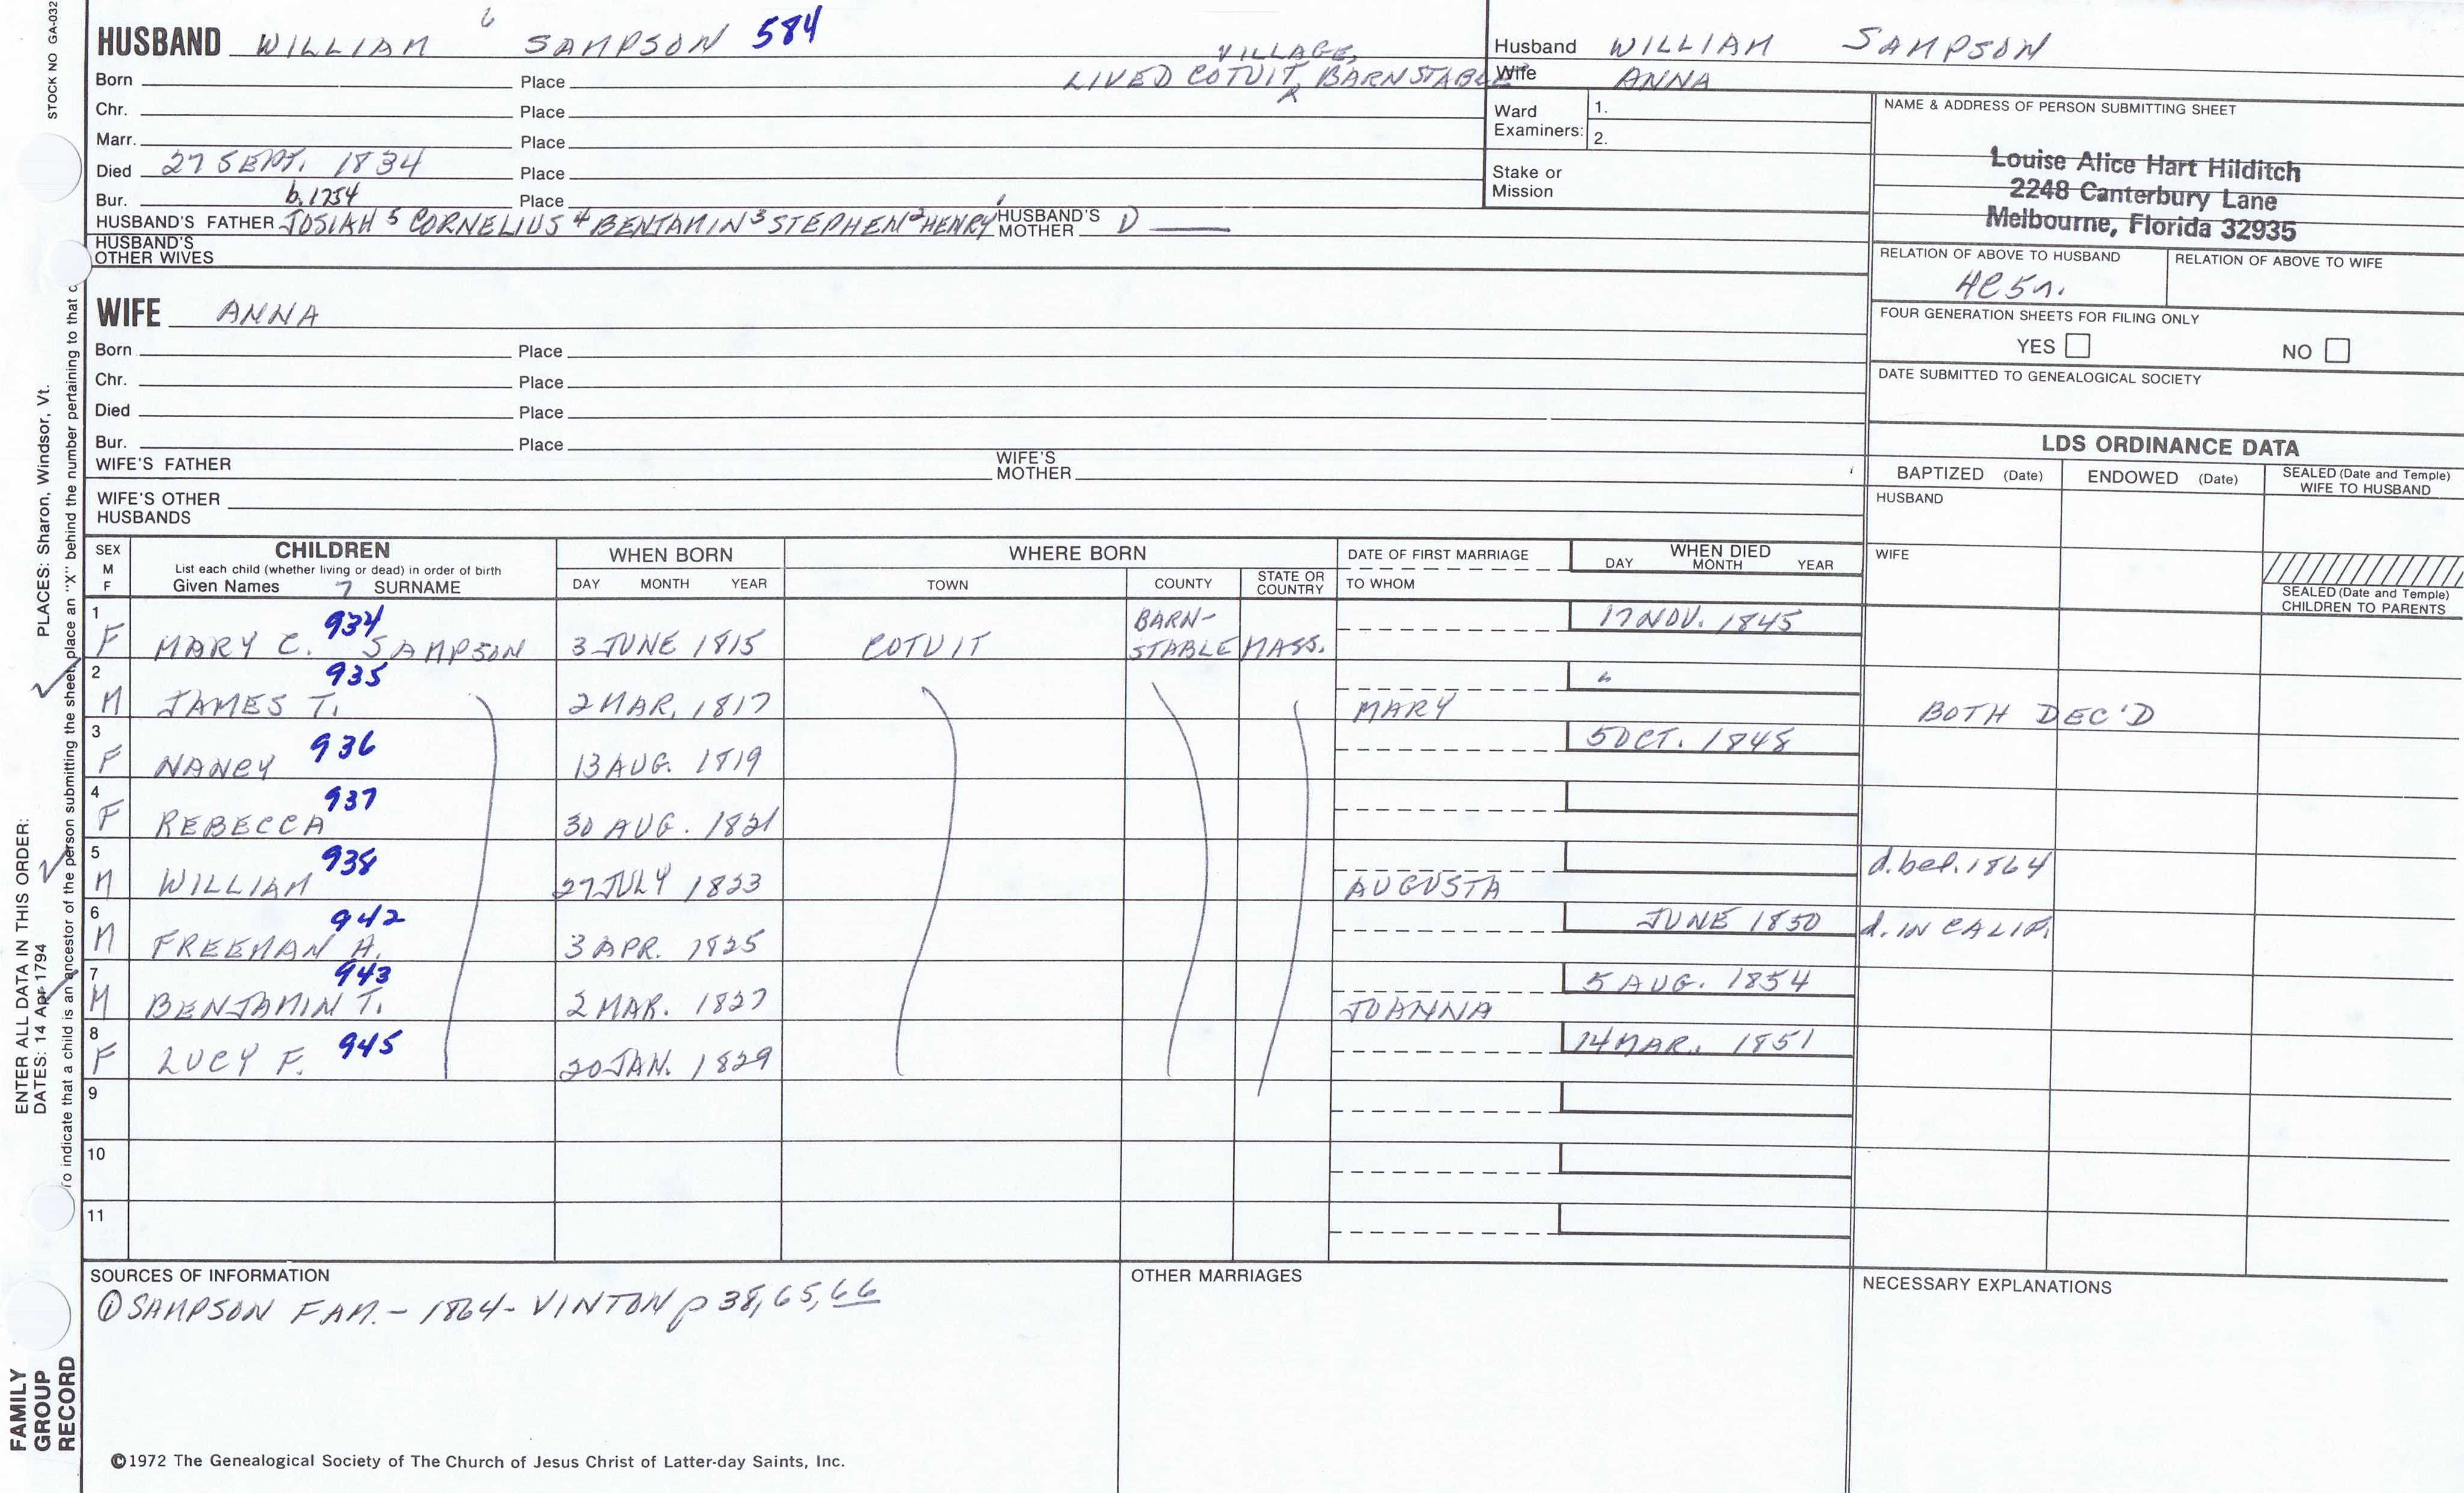 STOCK NO GA-032
HUSBAND WILLIAM 6 SAMPSON 584
VILLAGE,
LIVED COTUIT, BARNSTABLE
Born Place
Chr. Place
Marr. Place
Died 27 SEPT. 1834 Place
Bur. b.1754 Place
HUSBAND'S FATHER JOSIAH 5 CORNELIUS 4 BENJAMIN 3 STEPHEN 2 HENRY 1 HUSBAND'S MOTHER D
HUSBAND'S OTHER WIVES
Husband WILLIAM SAMPSON
Wife ANNA
Ward Examiners: 1.
2.
Stake or Mission
NAME & ADDRESS OF PERSON SUBMITTING SHEET
Louise Alice Hart Hilditch
2248 Canterbury Lane
Melbourne, Florida 32935
RELATION OF ABOVE TO HUSBAND RELATION OF ABOVE TO WIFE
FOUR GENERATION SHEETS FOR FILING ONLY
YES NO
DATE SUBMITTED TO GENEALOGICAL SOCIETY
WIFE ANNA
Born Place
Chr. Place
Died Place
Bur. Place
WIFE'S FATHER WIFE'S MOTHER
WIFE'S OTHER HUSBANDS
LDS ORDINANCE DATA
BAPTIZED (Date) ENDOWED (Date) SEALED (Date and Temple) WIFE TO HUSBAND
HUSBAND
WIFE
SEALED (Date and Temple) CHILDREN TO PARENTS
SEX M F
CHILDREN
List each child (whether living or dead) in order of birth
Given Names 7 SURNAME
WHEN BORN
DAY MONTH YEAR
WHERE BORN
TOWN COUNTY STATE OR COUNTRY
DATE OF FIRST MARRIAGE
TO WHOM
WHEN DIED
DAY MONTH YEAR
1 F MARY C. SAMPSON 934 3 JUNE 1815 COTUIT BARN-STABLE MASS. 17 NOV. 1845
2 M JAMES T. 935 2 MAR. 1817 MARY BOTH DEC'D
3 F NANCY 936 13 AUG. 1819 5 OCT. 1848
4 F REBECCA 937 30 AUG. 1821
5 M WILLIAM 938 27 JULY 1823 AUGUSTA d. bef. 1864
6 M FREEMAN A. 942 3 APR. 1825 JUNE 1850 d. IN CALIF.
7 M BENJAMIN T. 943 2 MAR. 1827 JOANNA 5 AUG. 1854
8 F LUCY F. 945 20 JAN. 1829 14 MAR. 1851
9
10
11
SOURCES OF INFORMATION
① SAMPSON FAM. - 1864 - VINTON p 38, 65, 66
OTHER MARRIAGES
NECESSARY EXPLANATIONS
©1972 The Genealogical Society of The Church of Jesus Christ of Latter-day Saints, Inc.
FAMILY
GROUP
RECORD
ENTER ALL DATA IN THIS ORDER:
DATES: 14 Apr 1794
PLACES: Sharon, Windsor, Vt.
To indicate that a child is an ancestor of the person submitting the sheet, place an "X" behind the number pertaining to that c